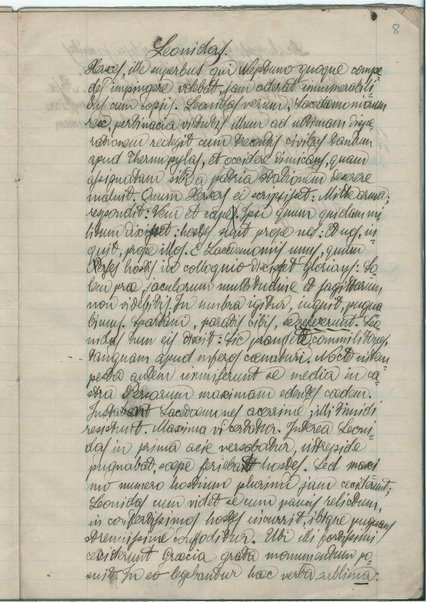 8
Leonidas.
Xerxes, ille superbus qui Neptuno quoque compe-
des impingere volebat, jam aderat innumerabili-
bus cum copiis. Leonidas verum, Lacedaemoniorum
rex, pertinacia virtutis illum ad ultimam despe-
rationem redegit cum trecentis civibus tantum
apud Thermopylas, et occidere dimicans, quam
assignatam sibi a patria stationem deserere
maluit. Quum Xerxes ei scripsisset: Mitte arma;
respondit: Veni et cape. Ipsi quum quidam mi-
litum dixisset: hostes sunt prope nos: Et nos, in-
quit, prope illos. E Lacedaemoniis unus, quum
Perses hostis in colloquio dixisset glorians: So-
lem prae jaculorum multitudine et sagittarum
non videbitis: In umbra igitur, inquit, pugna-
bimus. Spartam, paratis cibis, se refecerunt. Leo-
nidas tum eis dixit: Sic prandete, commilitones,
tanquam apud inferos coenaturi. Nocte intem-
pesta autem irruferunt se media in ca-
stra Persarum maximam edentes caedem.
Instabant Lacedaemones acerrime, illi timidi
restitunt. Maxima vi certatur. Interea Leoni-
das in prima acie versabatur, intrepide
pugnabat, saepe feriebat hostes. Sed maxi-
mo numero hostium plurimi jam ceciderunt,
Leonidas cum videt se cum paucis relictum,
in confertissimos hostes incurrit, ibique pugnans
strenuissime confoditur. Ubi illi fortissimi
ceciderunt Graecia grata monumentum po-
suit. In eo legebantur haec verba sublimia: